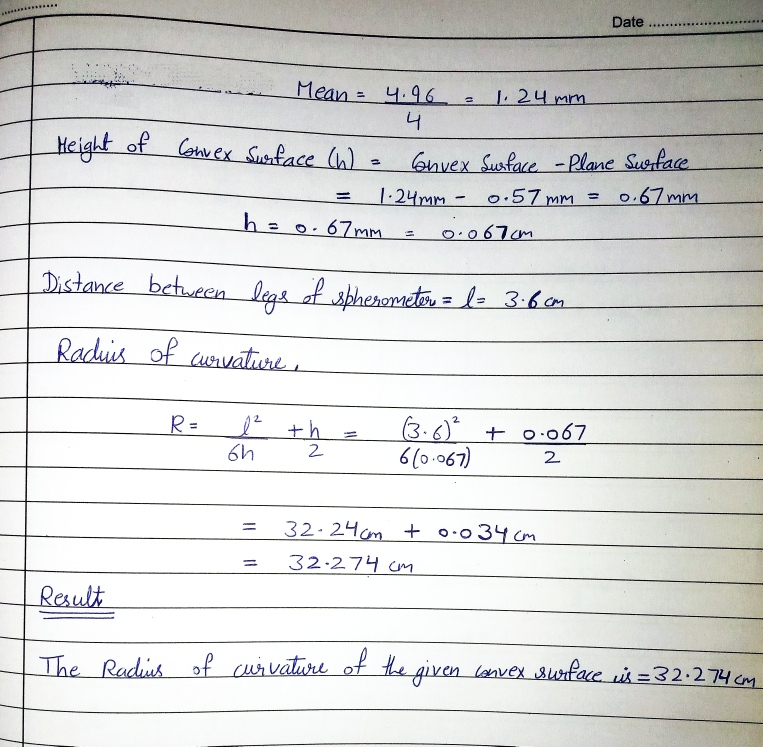 Date ....................
Mean = 4.96 / 4 = 1.24 mm
Height of Convex Surface (h) = Convex Surface - Plane Surface
= 1.24mm - 0.57 mm = 0.67 mm
h = 0.67mm = 0.067cm
Distance between legs of spherometer = l = 3.6 cm
Radius of curvature,
R = l² / 6h + h / 2 = (3.6)² / 6(0.067) + 0.067 / 2
= 32.24cm + 0.034 cm
= 32.274 cm
Result
The Radius of curvature of the given convex surface is = 32.274 cm